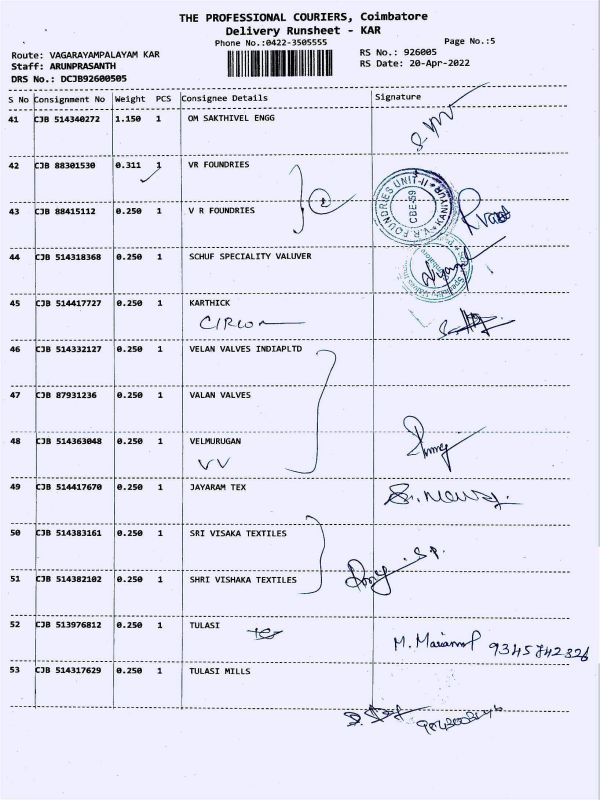 THE PROFESSIONAL COURIERS, Coimbatore
Delivery Runsheet - KAR
Phone No.:0422-3505555
Page No.:5
Route: VAGARAYAMPALAYAM KAR
RS No.: 926005
Staff: ARUNPRASANTH
RS Date: 20-Apr-2022
DRS No.: DCJB92600505
S No Consignment No Weight PCS Consignee Details Signature
41 CJB 514340272 1.150 1 OM SAKTHIVEL ENGG
42 CJB 88301530 0.311 1 VR FOUNDRIES
V.R. FOUNDRIES UNIT-II KANIYUR
CBE-59
43 CJB 88415112 0.250 1 V R FOUNDRIES
44 CJB 514318368 0.250 1 SCHUF SPECIALITY VALUVER
45 CJB 514417727 0.250 1 KARTHICK
46 CJB 514332127 0.250 1 VELAN VALVES INDIAPLTD
47 CJB 87931236 0.250 1 VALAN VALVES
48 CJB 514363048 0.250 1 VELMURUGAN
VV
49 CJB 514417670 0.250 1 JAYARAM TEX
50 CJB 514383161 0.250 1 SRI VISAKA TEXTILES
51 CJB 514382102 0.250 1 SHRI VISHAKA TEXTILES
52 CJB 513976812 0.250 1 TULASI
9345742326
53 CJB 514317629 0.250 1 TULASI MILLS